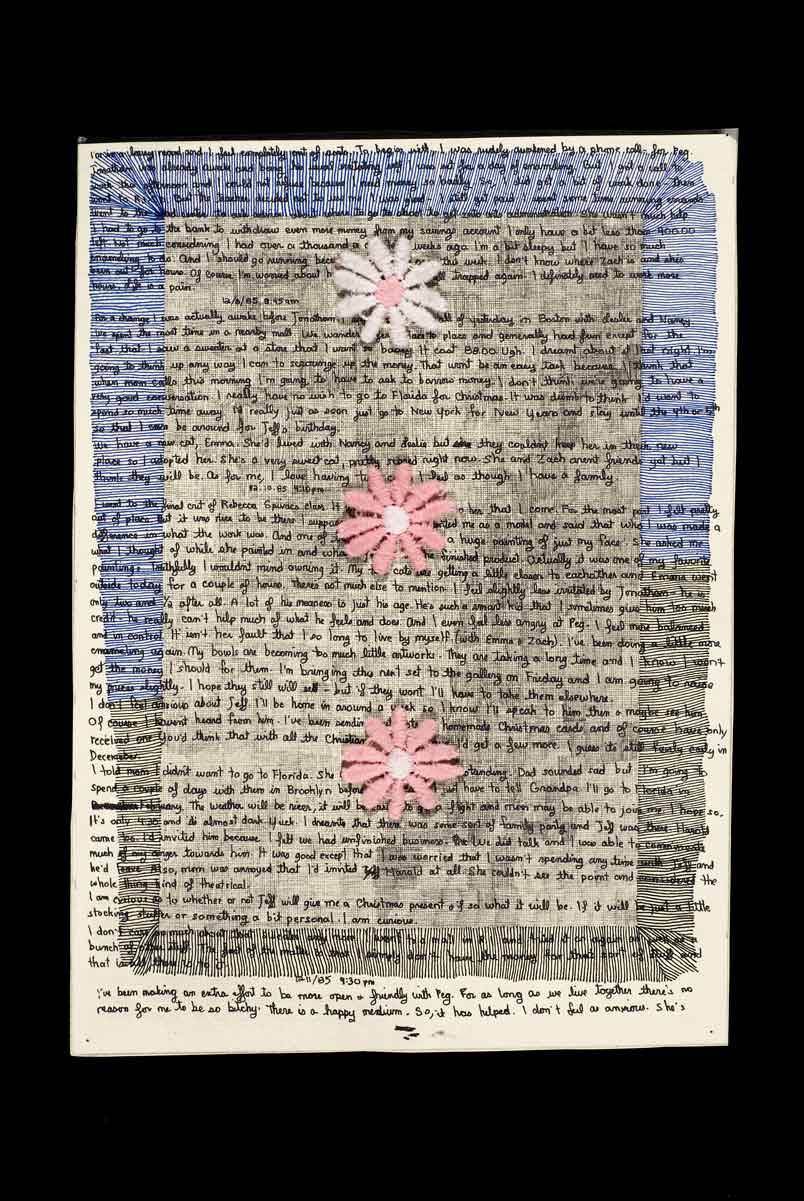 and I feel completely out of sorts. To begin with, I was rudely awakened by a phone call - for Peg.
Jonathan was already awake and being his usual irritating self. I was set for a day of enameling. But I got a call to
work this afternoon and could not refuse because I need money so badly. I did get a bit of work done - then
went to his But the teacher decided not to use me. I was good - I still got paid. I spent some time running errands
went to the much help
I had to go to the bank to withdraw even more money from my savings account. I only have a bit less than 400.00
left. Not much considering I had over a thousand a weeks ago. I'm a bit sleepy but I have so much
enameling to do. And I should go running this week. I don't know where Zach is and she's
been out for hours. Of course I'm worried about trapped again. I definitely need to work more
house. Life is a pain.
12/8/85 8:45am
For a change I was actually awake before Jonathan of yesterday in Boston with Leslie and Nancy
We spent the most time in a nearby mall. We wander to place and generally had fun except for the
fact that I saw a sweater at a store that I want so badly. It cost 88.00. Ugh. I dreamt about it last night. I'm
going to think up any way I can to scrounge up the money. That won't be an easy task because I think that
when mom calls this morning I'm going to have to ask to borrow money. I don't think we're going to have a
very good conversation. I really have no wish to go to Florida for Christmas. It was dumb to think I'd want to
spend so much time away. I'd really just as soon just go to New York for New Years and stay until the 4th or 5th
so that I can be around for Jeff's birthday.
We have a new cat, Emma. She'd lived with Nancy and Leslie but they couldn't keep her in their new
place so I adopted her. She's a very sweet cat, pretty right now. She and Zach aren't friends yet but I
think they will be. As for me, I love having I feel as though I have a family.
12.10.85 9:10pm
I went to the final crit of Rebecca Spivacs class. It her that I come. For the most part I felt pretty
out of place but it was nice to be there me as a model and said that who I was made a
difference in what the work was. And one of a huge painting of just my face. She asked me
what I thought of while she painted in and finished product. Actually it was one of my favorite
paintings. Truthfully I wouldn't mind owning it. My two cats are getting a little closer to eachother and Emma went
outside today for a couple of hours. There's not much else to mention. I feel slightly less irritated by Jonathan - he is
only two and ½ after all. A lot of his meaness is just his age. He's such a smart kid that I sometimes give him too much
credit - he really can't help much of what he feels and does. And I even feel less angry at Peg. I feel more balanced
and in control. It isn't her fault that I so long to live by myself. (with Emma & Zach). I've been doing a little more
enameling again. My bowls are becoming too much little artworks. They are taking a long time and I know I won't
get the money I should for them. I'm bringing this next set to the gallery on Friday and I am going to raise
my prices slightly. I hope they still will sell - but if they won't I'll have to take them elsewhere.
I don't feel anxious about Jeff. I'll be home in around a week so I know I'll speak to him then & maybe see him.
Of course I haven't heard from him. I've been sendin homemade Christmas cards and of course have only
received one. You'd think that with all the Christian I'd get a few more. I guess its still fairly early in
December.
I told mom I didn't want to go to Florida. She standing. Dad sounded sad but I'm going to
spend a couple of days with them in Brooklyn before just have to tell Grandpa I'll go to Florida in
February. The weather will be nicer, it will be to get a flight and mom may be able to join me. I hope so.
It's only 4:30 and its almost dark. Yuck. I dreamt that there was some sort of family party and Jeff was there. Harold
came too. I'd invited him because I felt we had unfinished business. We did talk and I was able to communicate
much of my anger towards him. It was good except that I was worried that I wasn't spending any time with Jeff and
he'd leave. Also, mom was annoyed that I'd invited Harold at all. She couldn't see the point and considered the
whole thing kind of theatrical.
I am curious as to whether or not Jeff will give me a Christmas present & if so what it will be. If it will be just a little
stocking stuffer or something a bit personal. I am curious.
I don't care so much about that sweater any more. I went to a mall in and tried it on again as well as a
bunch of other stuff. The fact of the matter is that I simply don't have the money for that sort of stuff and
that is all there is to it.
12/11/85 9:30pm
I've been making an extra effort to be more open & friendly with Peg. For as long as we live together there's no
reason for me to be so bitchy. There is a happy medium. So, it has helped. I don't feel as anxious. She's